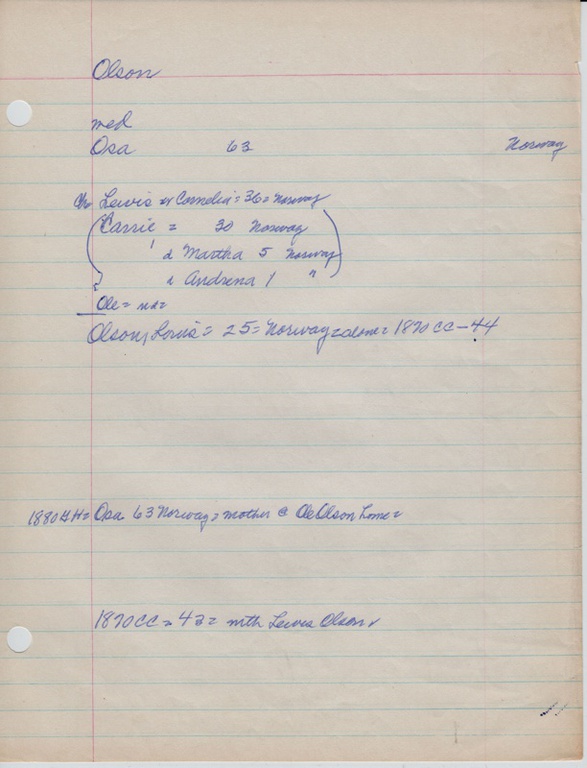 Olson
med
Osa 63 Norway
ch= Lewis w Cornelia = 36 = Norway
(Carrie = 30 Norway)
d Martha 5 Norway
d Andrena 1 "
Ole = na =
Olson, Lewis = 25 = Norway = alone = 1870 CC - 44
1880 = Osa 63 Norway = mother @ Ole Olson home =
1870 CC = 43 = mth Lewis Olson